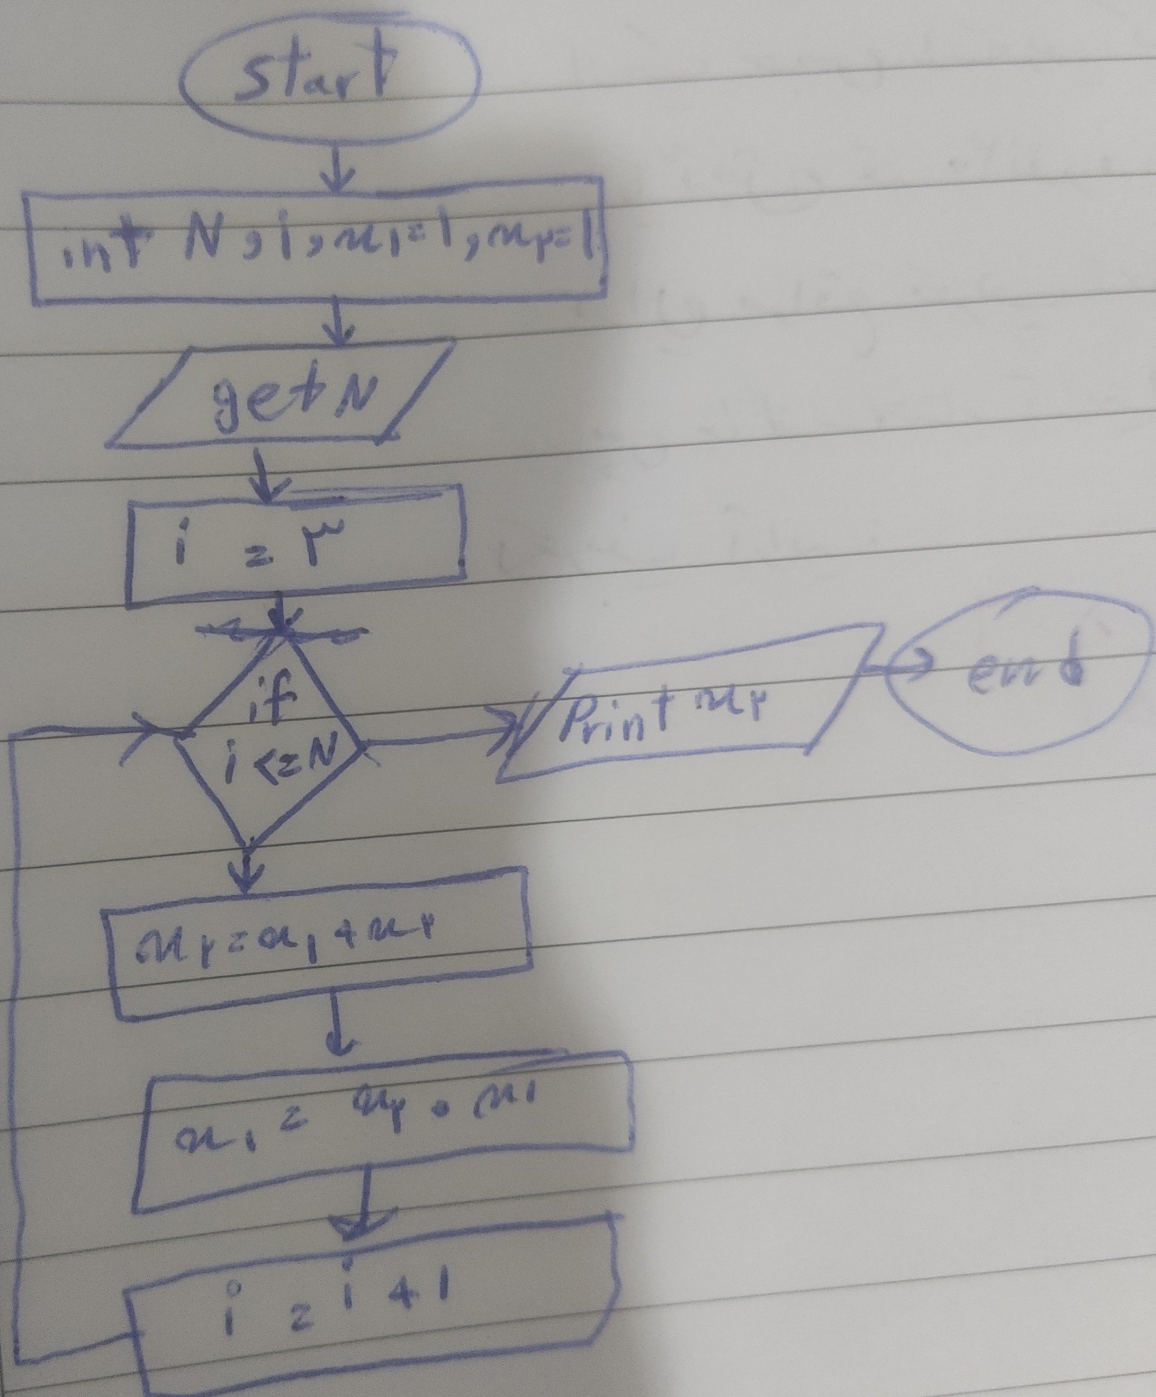 start
int N, i, x₁=1, x۲=1
get N
i = ۳
if
i <= N
Print x۲
end
x۲ = x₁ + x۲
x₁ = x۲ - x₁
i = i + 1